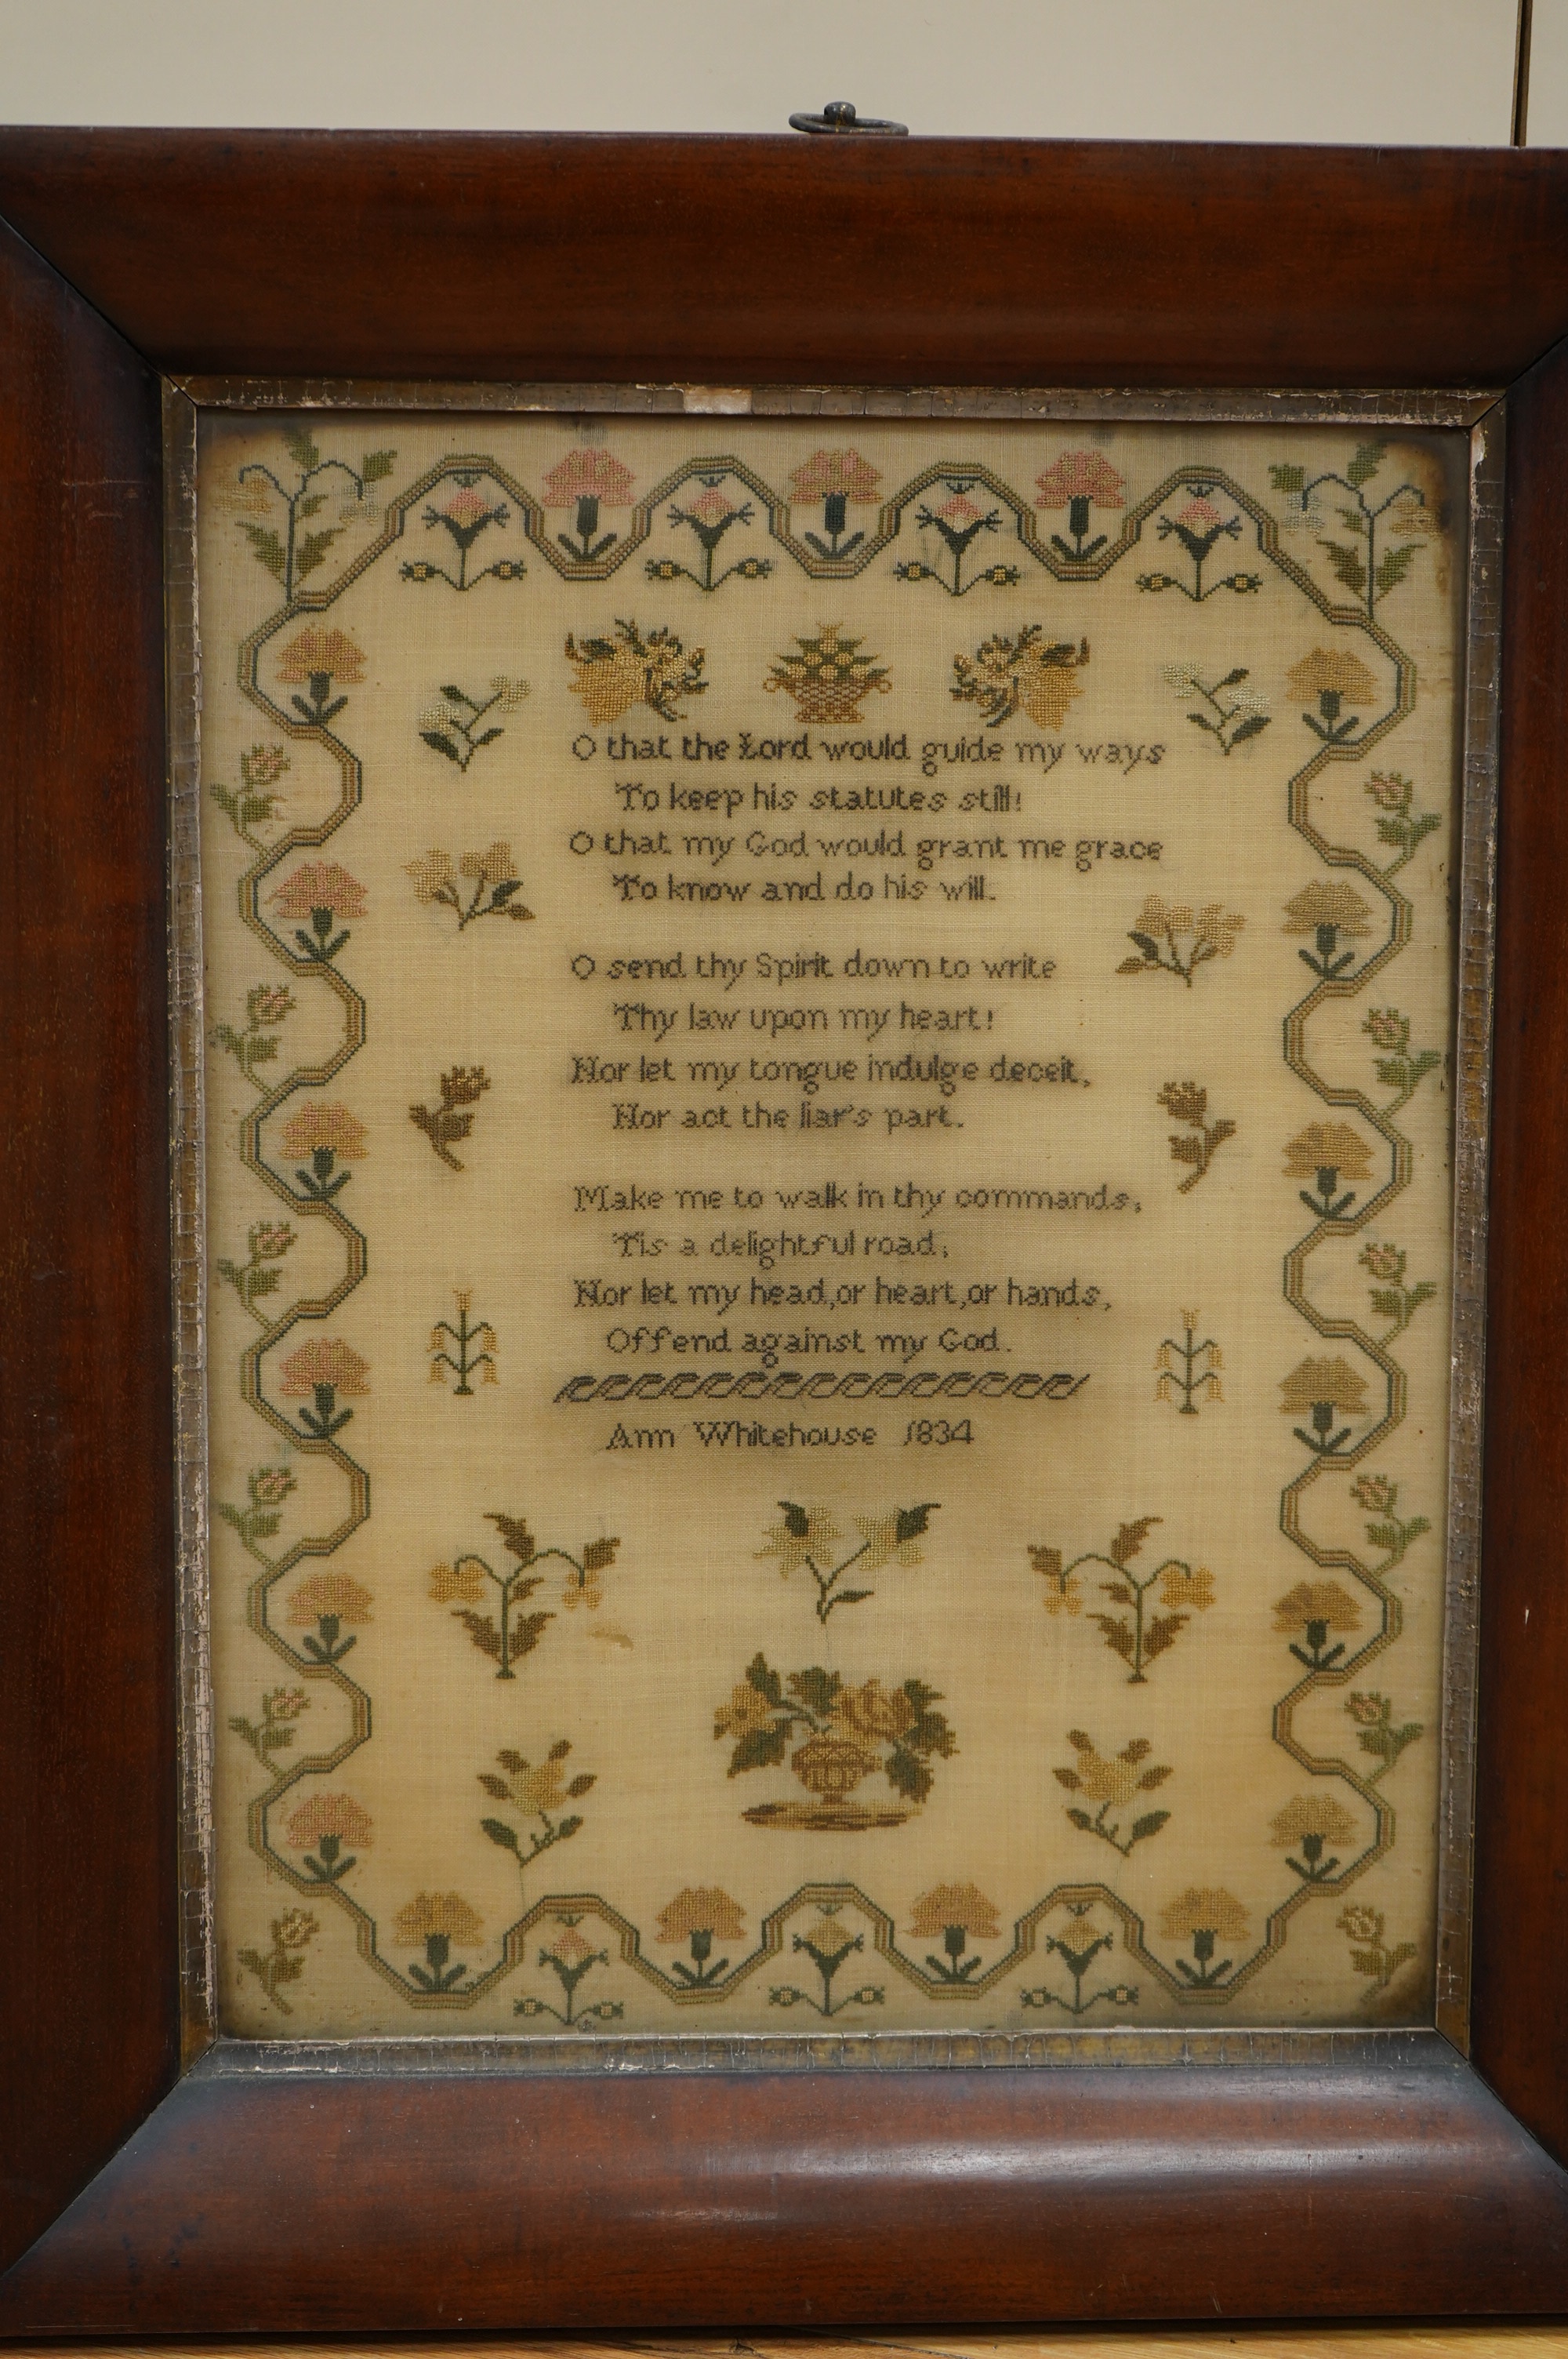 O that the Lord would guide my ways
To keep his statutes still!
O that my God would grant me grace
To know and do his will.
O send thy Spirit down to write
Thy law upon my heart!
Nor let my tongue indulge deceit,
Nor act the liar's part.
Make me to walk in thy commands,
Tis a delightful road;
Nor let my head, or heart, or hands,
Offend against my God.
Ann Whitehouse 1834